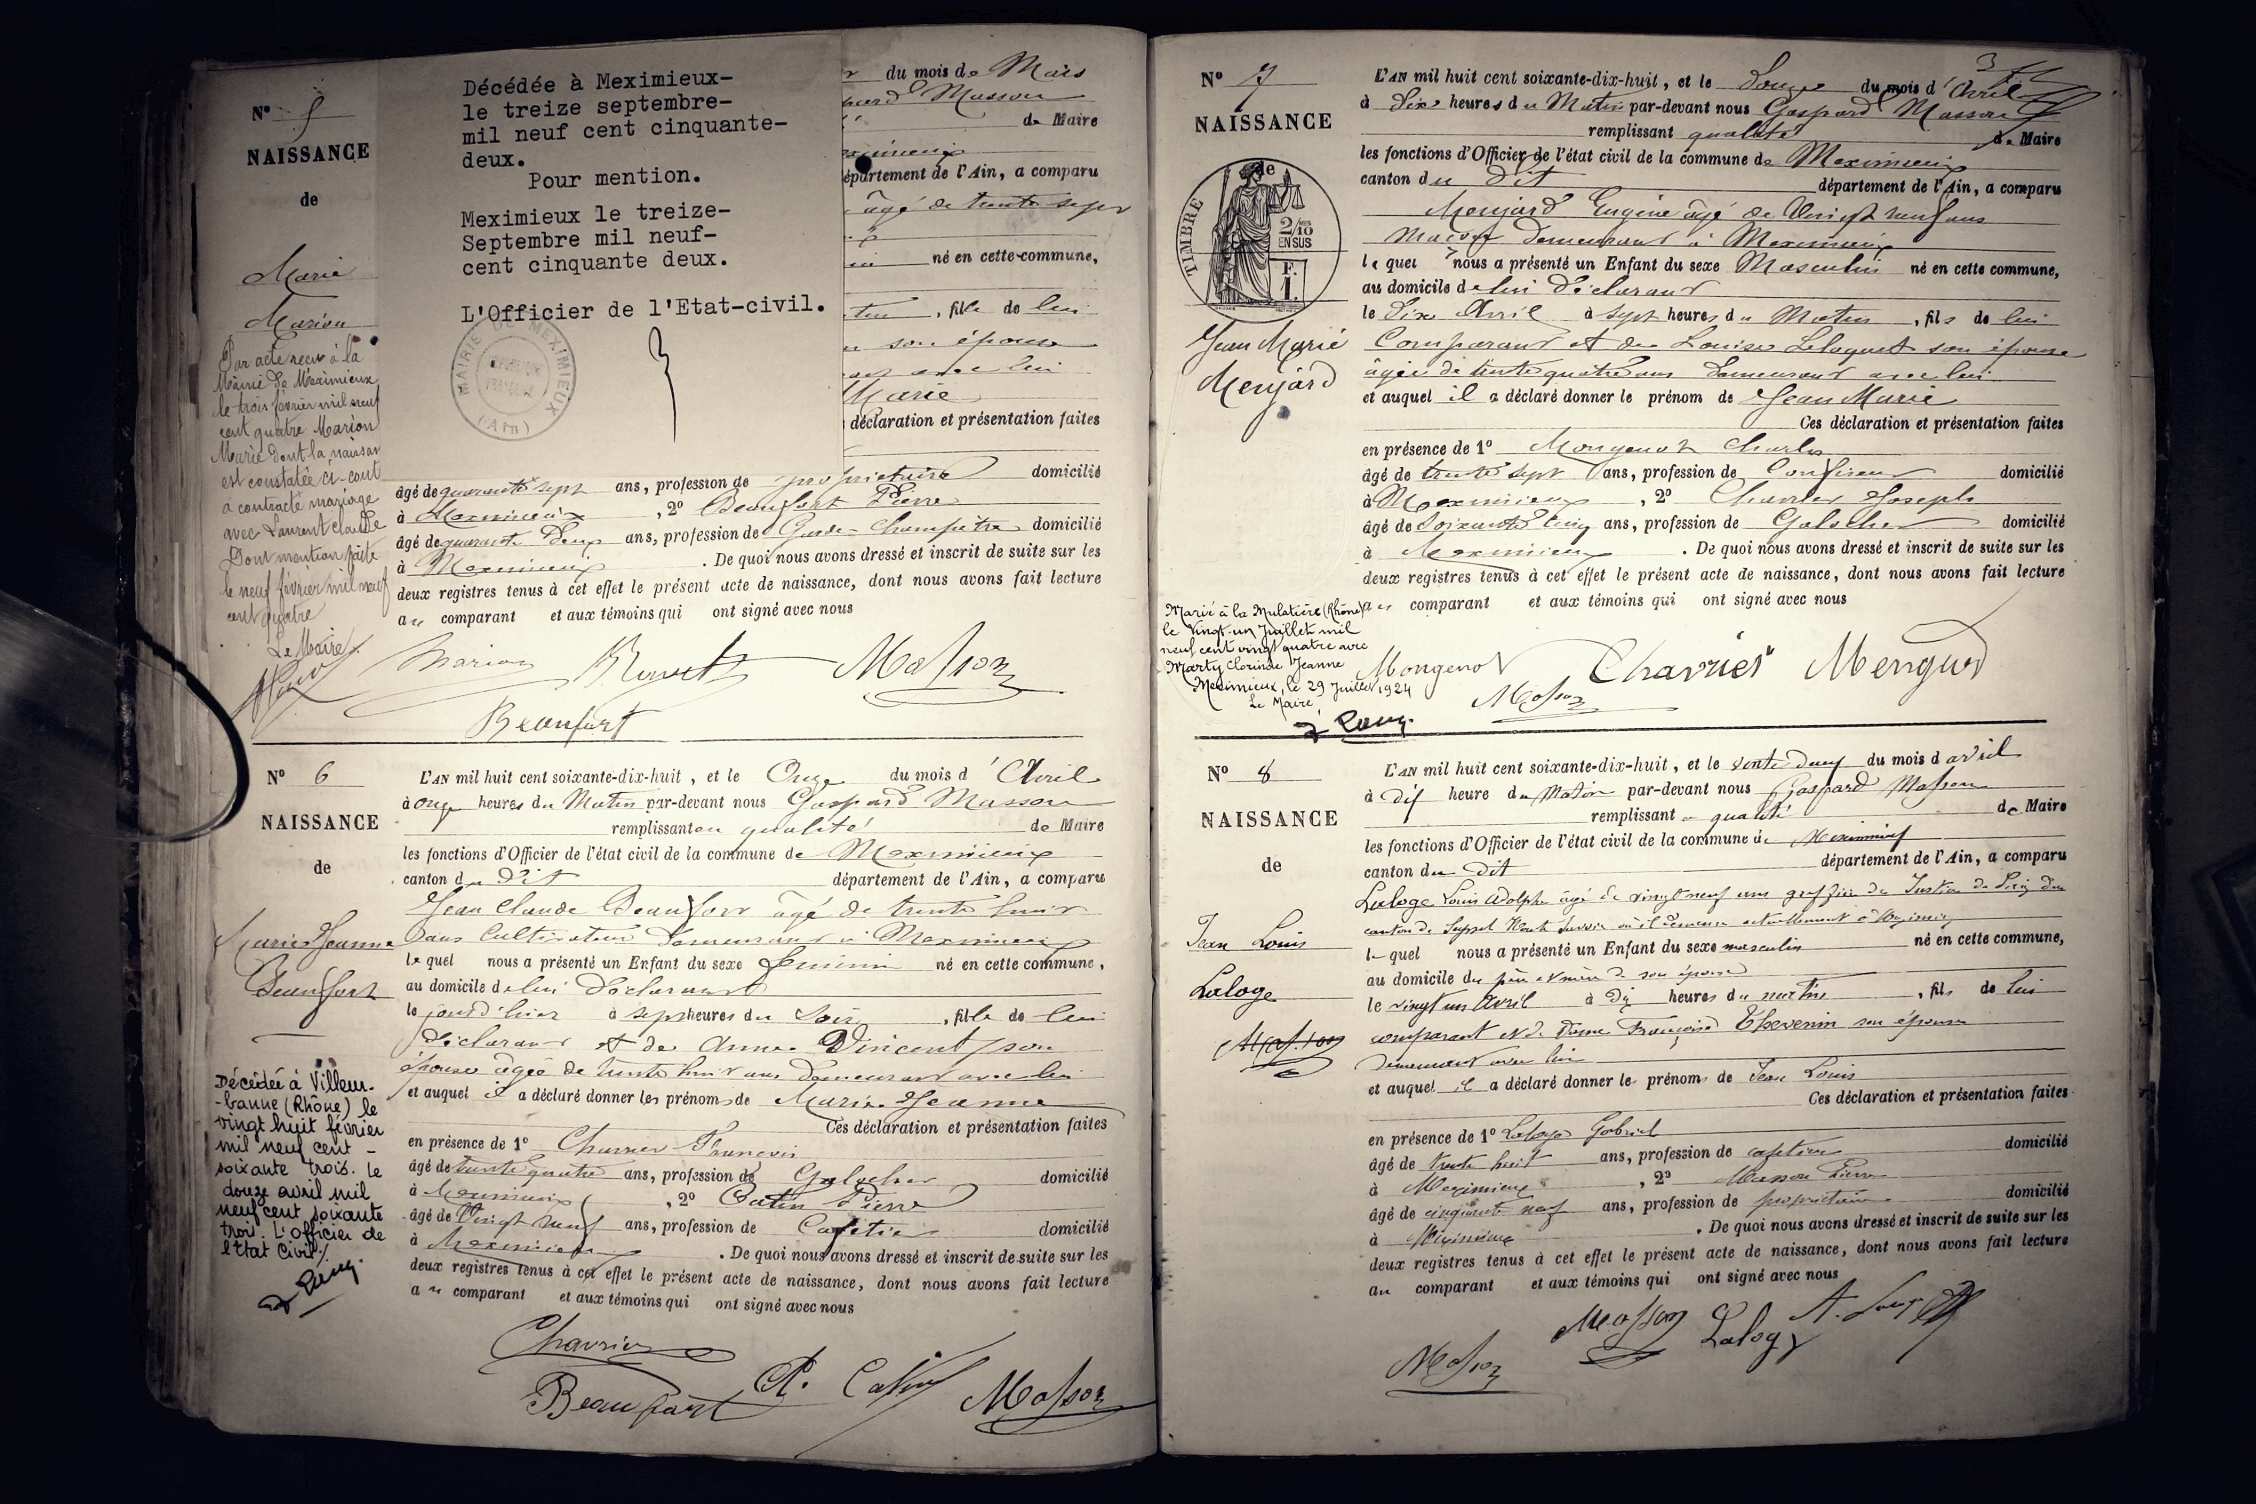 N° 5
NAISSANCE
de
Marie
Marion
Par acte reçu à la
Mairie de Meximieux
le trois février mil neuf
cent quatre Marion
Marie dont la naissan
est constatée ci-cont
a contracté mariage
avec Laurent Claude
Dont mention faite
le neuf février mil neuf
cent quatre
Le Maire
Décédée à Meximieux-
le treize septembre-
mil neuf cent cinquante-
deux.
Pour mention.
Meximieux le treize-
Septembre mil neuf-
cent cinquante deux.
L'Officier de l'Etat-civil.
MAIRIE DE MEXIMIEUX
(Ain)
du mois de Mars
Masson
de Maire
département de l'Ain, a comparu
âgé de trente sept
né en cette commune,
, fille de lui
son épouse
avec lui
Marie
déclaration et présentation faites
âgé de quarante sept ans, profession de propriétaire domicilié
à Meximieux, 2° Beaufort Pierre
âgé de quarante deux ans, profession de Garde-Champêtre domicilié
à Meximieux. De quoi nous avons dressé et inscrit de suite sur les
deux registres tenus à cet effet le présent acte de naissance, dont nous avons fait lecture
au comparant et aux témoins qui ont signé avec nous
Marion Masson
Beaufort
N° 6
NAISSANCE
de
Marie Jeanne
Beaufort
Décédée à Villeur-
-banne (Rhône) le
vingt huit février
mil neuf cent -
soixante trois. le
douze avril mil
neuf cent soixante
trois. L'officier de
l'Etat Civil
L'AN mil huit cent soixante-dix-huit, et le Onze du mois d'Avril
à onze heures du Matin par-devant nous Gaspard Masson
remplissant en qualité de Maire
les fonctions d'Officier de l'état civil de la commune de Meximieux
canton du dit département de l'Ain, a comparu
Jean Claude Beaufort âgé de trente huit
ans Cultivateur demeurant à Meximieux
lequel nous a présenté un Enfant du sexe féminin né en cette commune,
au domicile de lui déclarant
le jour d'hier à sept heures du Soir, fille de lui
déclarant et de Anne Vincent son
épouse âgée de trente huit ans demeurant avec lui
et auquel il a déclaré donner les prénoms de Marie Jeanne
Ces déclaration et présentation faites
en présence de 1° Charrier François
âgé de trente quatre ans, profession de Galocher domicilié
à Meximieux, 2° Catin Pierre
âgé de Vingt neuf ans, profession de Cafetier domicilié
à Meximieux. De quoi nous avons dressé et inscrit de suite sur les
deux registres tenus à cet effet le présent acte de naissance, dont nous avons fait lecture
au comparant et aux témoins qui ont signé avec nous
Charrier
Beaufort P. Catin Masson
3
N° 7
NAISSANCE
de
TIMBRE
2/10
EN SUS
F.
1.
Jean Marie
Menjard
Marié à la Mulatière (Rhône)
le vingt-un Juillet mil
neuf cent vingt quatre avec
Marty Clorinde Jeanne
Meximieux, le 29 Juillet 1924
Le Maire,
L'AN mil huit cent soixante-dix-huit, et le Douze du mois d'Avril
à Dix heures du Matin par-devant nous Gaspard Masson
remplissant qualité de Maire
les fonctions d'Officier de l'état civil de la commune de Meximieux
canton du dit département de l'Ain, a comparu
Menjard Eugène âgé de Vingt neuf ans
demeurant à Meximieux
lequel nous a présenté un Enfant du sexe Masculin né en cette commune,
au domicile de lui déclarant
le Dix Avril à sept heures du Matin, fils de lui
Comparant et de Louise Leloquet son épouse
âgée de trente quatre ans demeurant avec lui
et auquel il a déclaré donner le prénom de Jean Marie
Ces déclaration et présentation faites
en présence de 1° Mongenot Charles
âgé de trente sept ans, profession de Confiseur domicilié
à Meximieux, 2° Charrier Joseph
âgé de Soixante cinq ans, profession de Galocher domicilié
à Meximieux. De quoi nous avons dressé et inscrit de suite sur les
deux registres tenus à cet effet le présent acte de naissance, dont nous avons fait lecture
au comparant et aux témoins qui ont signé avec nous
Mongenot Charrier Menjard
Masson
N° 8
NAISSANCE
de
Jean Louis
Laloge
Masson
L'AN mil huit cent soixante-dix-huit, et le vente deux du mois d avril
à dix heure du Matin par-devant nous Gaspard Masson
remplissant qualité de Maire
les fonctions d'Officier de l'état civil de la commune de Meximieux
canton du dit département de l'Ain, a comparu
Laloge Louis Adolphe âgé de vingt neuf ans greffier de Justice de Paix du
canton de Seyssel Haute Savoie où il demeure actuellement à Meximieux
lequel nous a présenté un Enfant du sexe masculin né en cette commune,
au domicile du père et mère de son épouse
le vingt un Avril à dix heures du matin, fils de lui
comparant et de Dame Françoise Thevenin son épouse
demeurant avec lui
et auquel il a déclaré donner les prénoms de Jean Louis
Ces déclaration et présentation faites
en présence de 1° Laloge Gabriel
âgé de trente huit ans, profession de cafetier domicilié
à Meximieux, 2° Masson Pierre
âgé de cinquante neuf ans, profession de propriétaire domicilié
à Meximieux. De quoi nous avons dressé et inscrit de suite sur les
deux registres tenus à cet effet le présent acte de naissance, dont nous avons fait lecture
au comparant et aux témoins qui ont signé avec nous
Masson Laloge A. Laloge
Masson